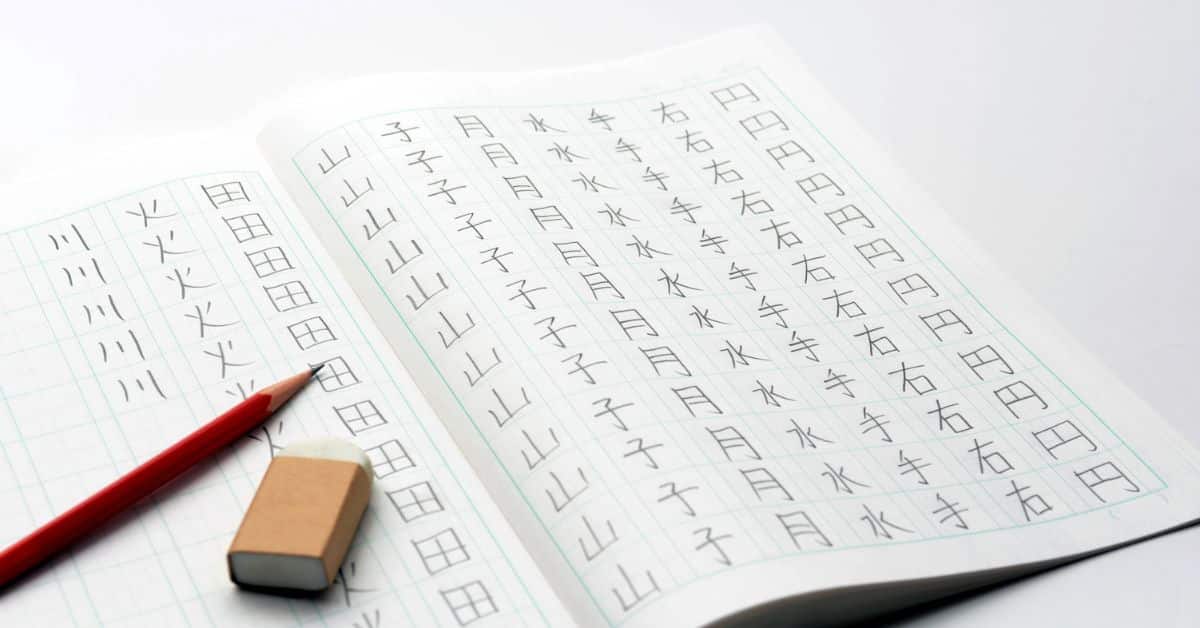 円円円円円円円円円円円円
右右右右右右右右右右右右
手手手手手手手手手手手手
水水水水水水水水水水水水
月月月月月月月月月月月月
子子子子子子子子子子子子
山山山山山山山山山山山山
田田田田田田田田田田田
火火火火火
川川川川川